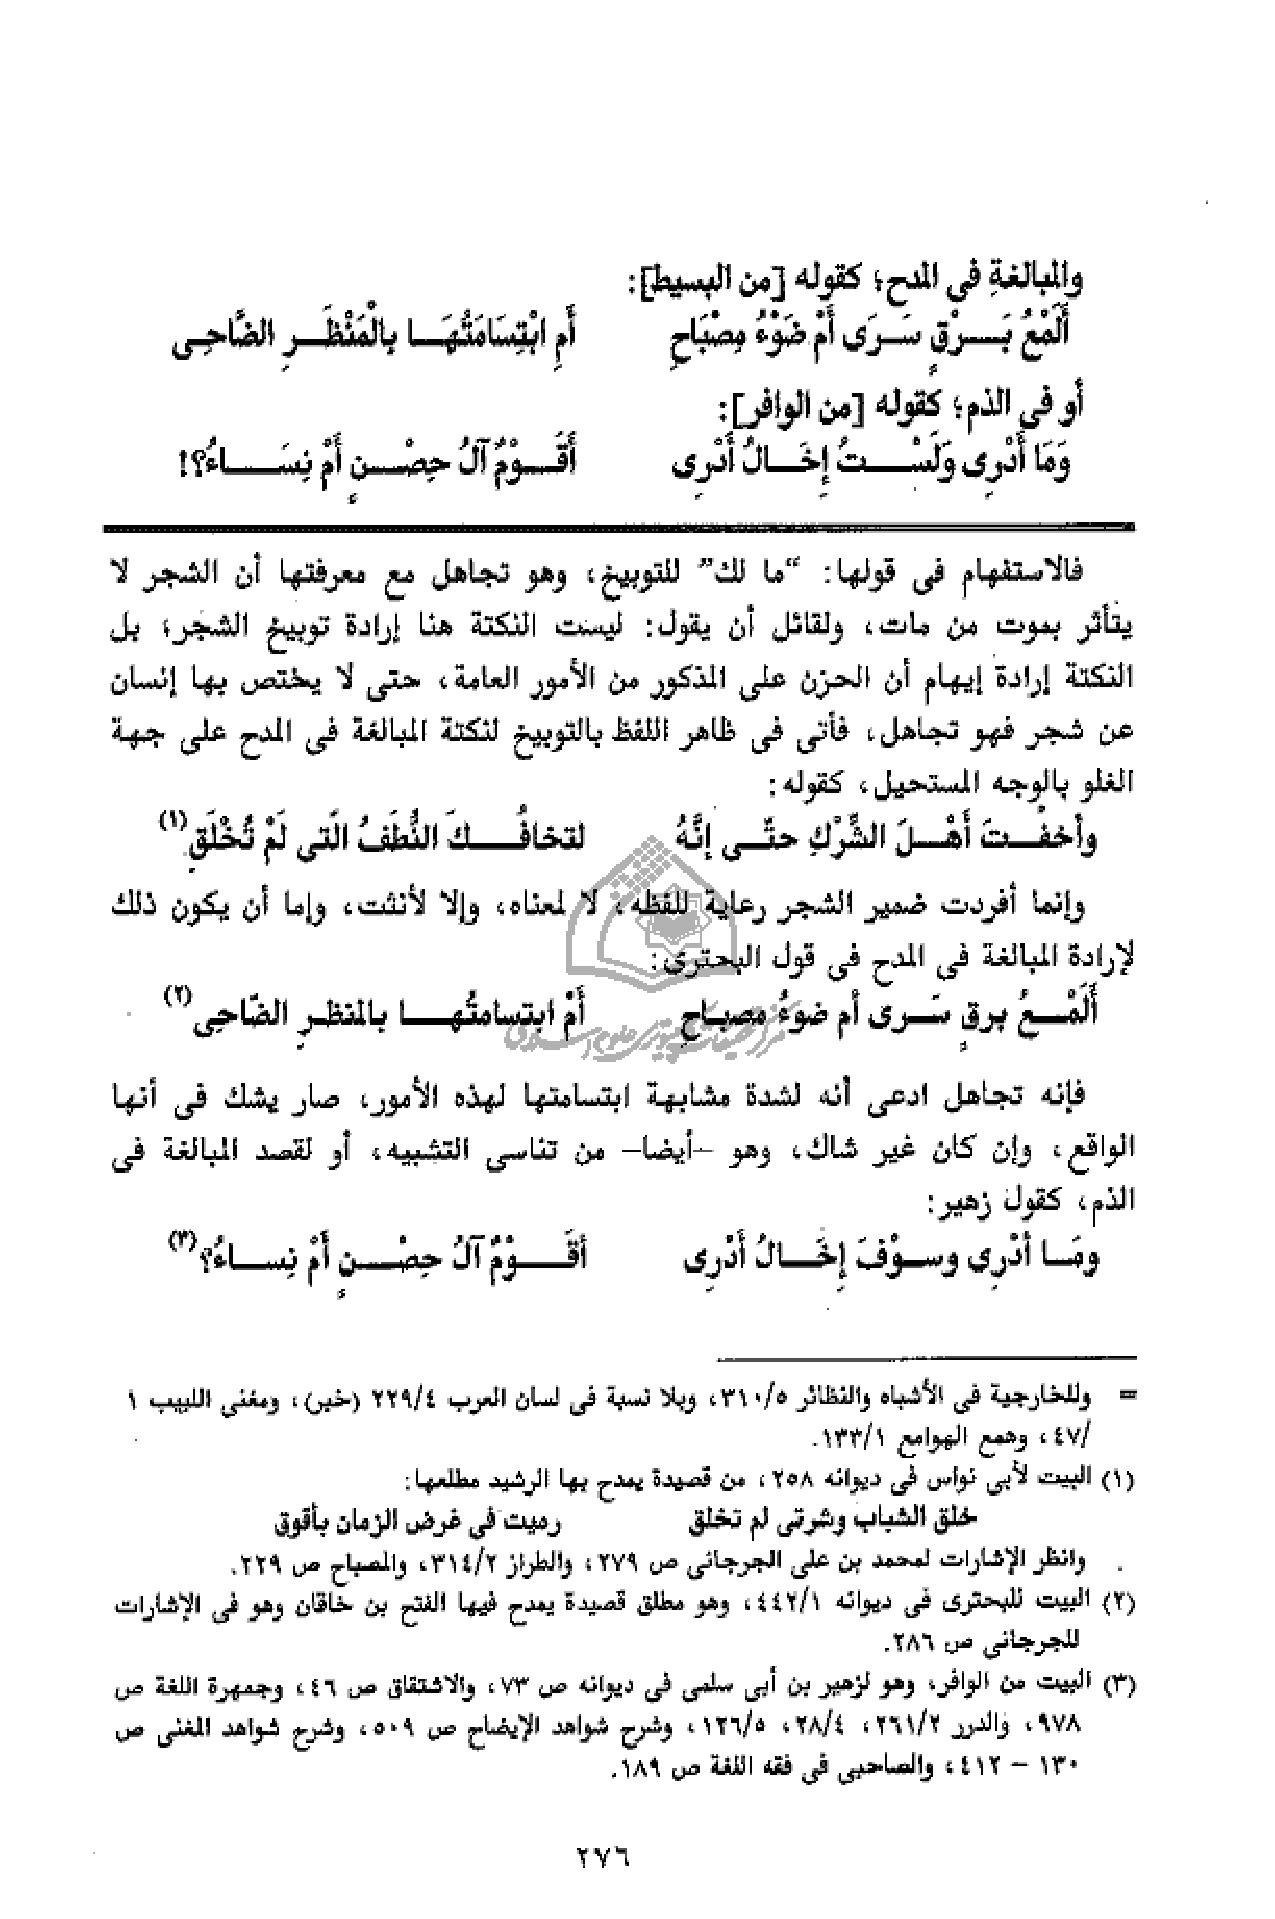 والمبالغةِ فى المدح؛ كقوله [من البسيط]:
أَلَمْعُ بَرْقٍ سَرَى أَمْ ضَوْءُ مِصْبَاحِ أَمِ ابْتِسَامَتُهَا بِالْمَنْظَرِ الضَّاحِى
أو فى الذم؛ كقوله [من الوافر]:
وَمَا أَدْرِى وَلَسْتُ إِخَالُ أَدْرِى أَقَوْمٌ آلُ حِصْنٍ أَمْ نِسَاءُ؟!
فالاستفهام فى قولها: “ما لك” للتوبيخ، وهو تجاهل مع معرفتها أن الشجر لا
يتأثر بموت من مات، ولقائل أن يقول: ليست النكتة هنا إرادة توبيخ الشجر؛ بل
النكتة إرادة إيهام أن الحزن على المذكور من الأمور العامة، حتى لا يختص بها إنسان
عن شجر فهو تجاهل، فأتى فى ظاهر اللفظ بالتوبيخ لنكتة المبالغة فى المدح على جهة
الغلو بالوجه المستحيل، كقوله:
وأخفْتَ أَهْلَ الشِّرْكِ حتَّى إنَّهُ لتخافُكَ النُّطَفُ الَّتى لَمْ تُخْلَقِ(١)
وإنما أفردت ضمير الشجر رعاية للفظه، لا لمعناه، وإلا لأنثت، وإما أن يكون ذلك
لإرادة المبالغة فى المدح فى قول البحترى:
أَلَمْعُ برقٍ سَرى أم ضوءُ مصباحِ أمْ ابتسامتُها بالمنظرِ الضَّاحِى(٢)
فإنه تجاهل ادعى أنه لشدة مشابهة ابتسامتها لهذه الأمور، صار يشك فى أنها
الواقع، وإن كان غير شاك، وهو –أيضا– من تناسى التشبيه، أو لقصد المبالغة فى
الذم، كقول زهير:
ومَا أدْرِى وسوْفَ إِخَالُ أَدْرِى أقَوْمٌ آلُ حِصْنٍ أَمْ نِساءُ؟(٣)
= وللخارجية فى الأشباه والنظائر ٣١٠/٥، وبلا نسبة فى لسان العرب ٢٢٩/٤ (خير)، ومغنى اللبيب ١
/٤٧، وهمع الهوامع ١٣٣/١.
(١) البيت لأبى نواس فى ديوانه ٢٥٨، من قصيدة يمدح بها الرشيد مطلعها:
خلق الشباب وشرتى لم تخلق رميت فى غرض الزمان بأفوق
وانظر الإشارات لمحمد بن على الجرجانى ص ٢٧٩، والطراز ٣١٤/٢، والمصباح ص ٢٢٩.
(٢) البيت للبحترى فى ديوانه ٤٤٢/١، وهو مطلق قصيدة يمدح فيها الفتح بن خاقان وهو فى الإشارات
للجرجانى ص ٢٨٦.
(٣) البيت من الوافر، وهو لزهير بن أبى سلمى فى ديوانه ص ٧٣، والاشتقاق ص ٤٦، وجمهرة اللغة ص
٩٧٨، والدرر ٢٦١/٢، ٢٨/٤، ١٢٦/٥، وشرح شواهد الإيضاح ص ٥٠٩، وشرح شواهد المغنى ص
١٣٠ – ٤١٢، والصاحبى فى فقه اللغة ص ١٨٩.
٢٧٦